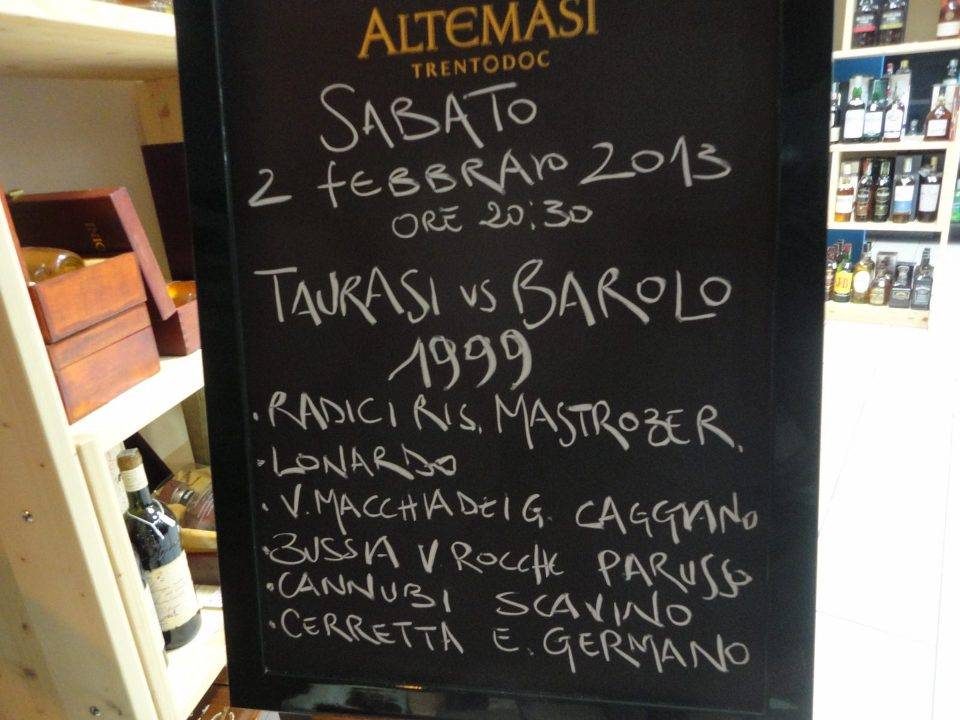 ALTEMASI
TRENTODOC
SABATO
2 FEBBRAIO 2013
ORE 20:30
TAURASI VS BAROLO
1999
·RADICI RIS. MASTROBER.
·LONARDO
·V. MACCHIA DEI G. CAGGIANO
·BUSSIA V ROCCHE PARUSSO
·CANNUBI SCAVINO
·CERRETTA E. GERMANO